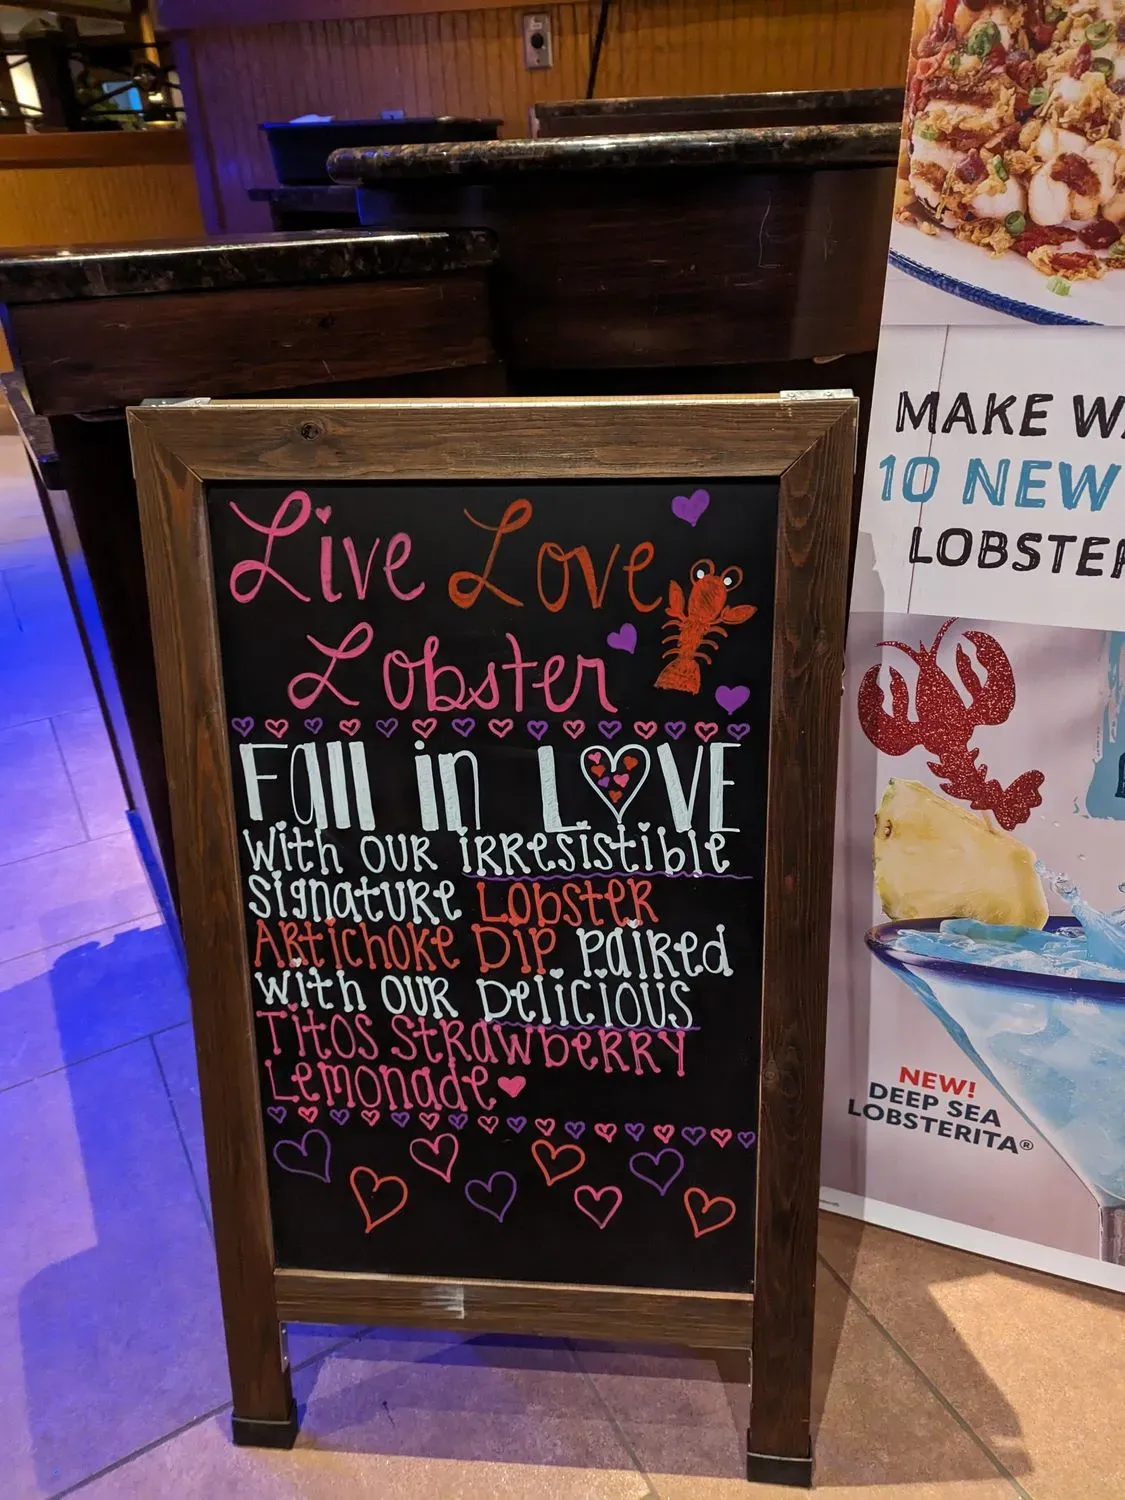 Live Love
Lobster
Fall in LOVE
With our irresistible
signature Lobster
Artichoke Dip paired
with our Delicious
Titos Strawberry
Lemonade
MAKE
10 NEW
NEW!
DEEP SEA
LOBSTERITA®